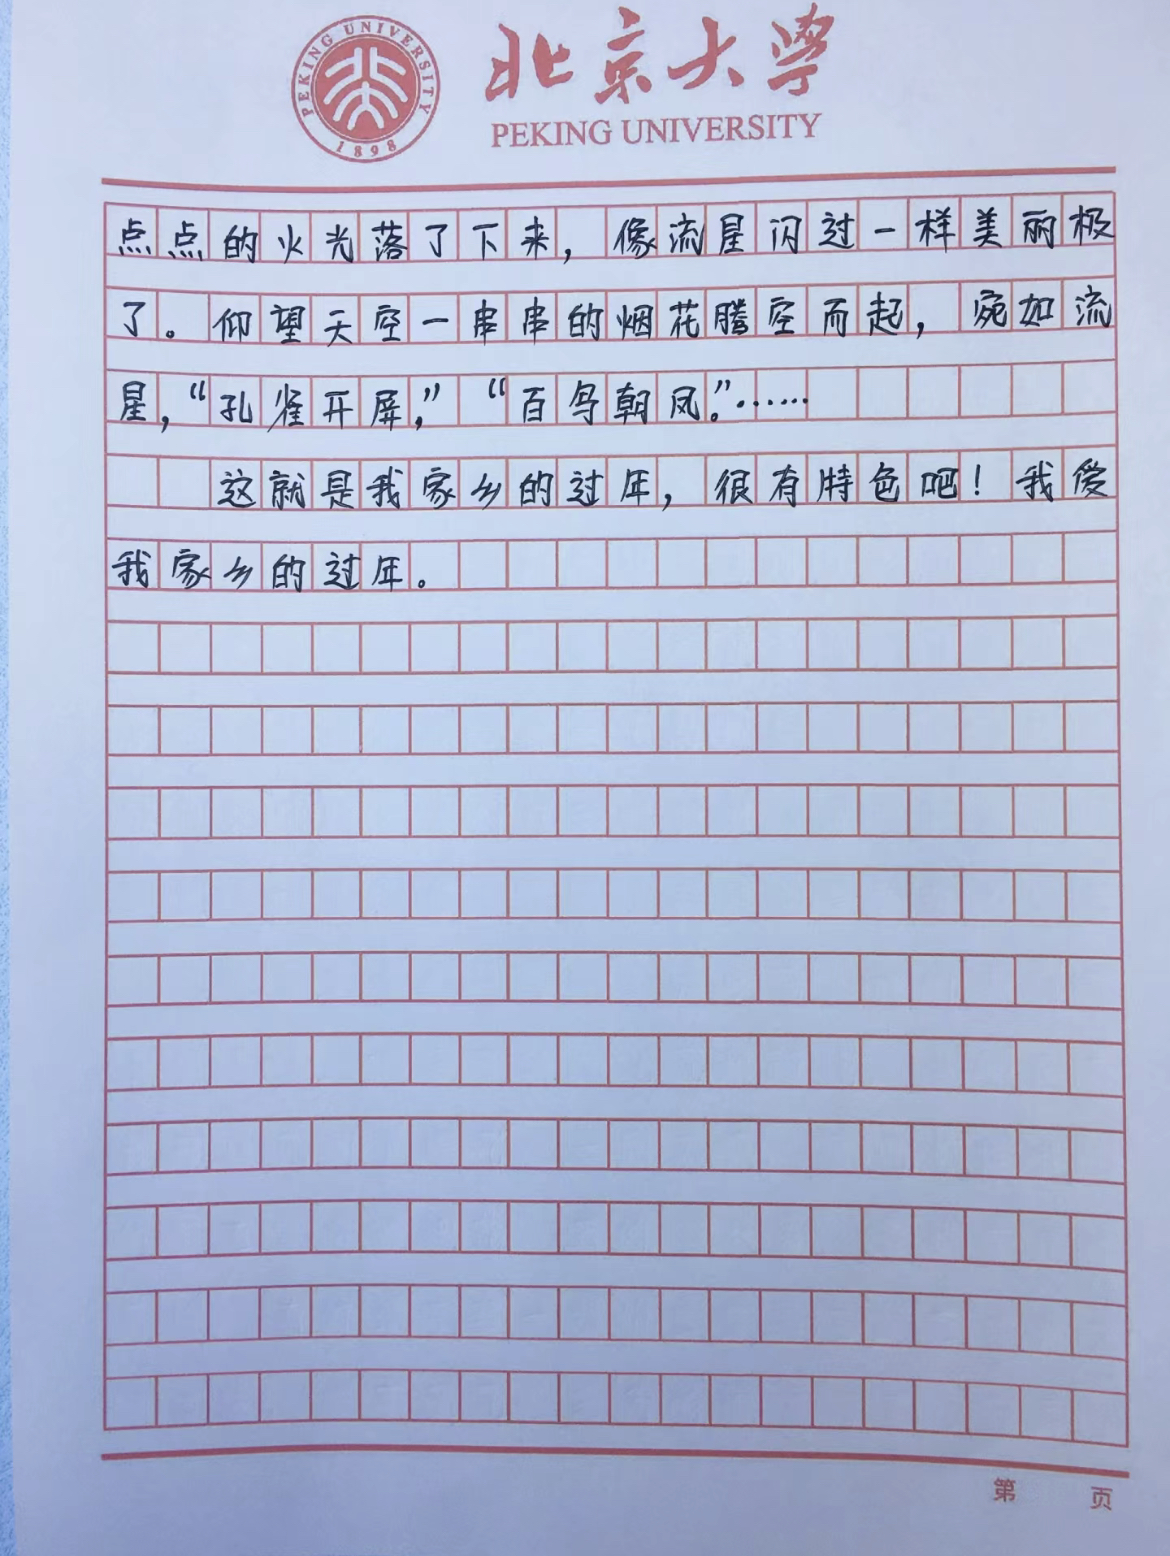 PEKING UNIVERSITY
1898
北京大学
PEKING UNIVERSITY
点点的火光落了下来，像流星闪过一样美丽极
了。仰望天空一串串的烟花腾空而起，宛如流
星，“孔雀开屏，”“百鸟朝凤。”……
这就是我家乡的过年，很有特色吧！我爱
我家乡的过年。
第 页